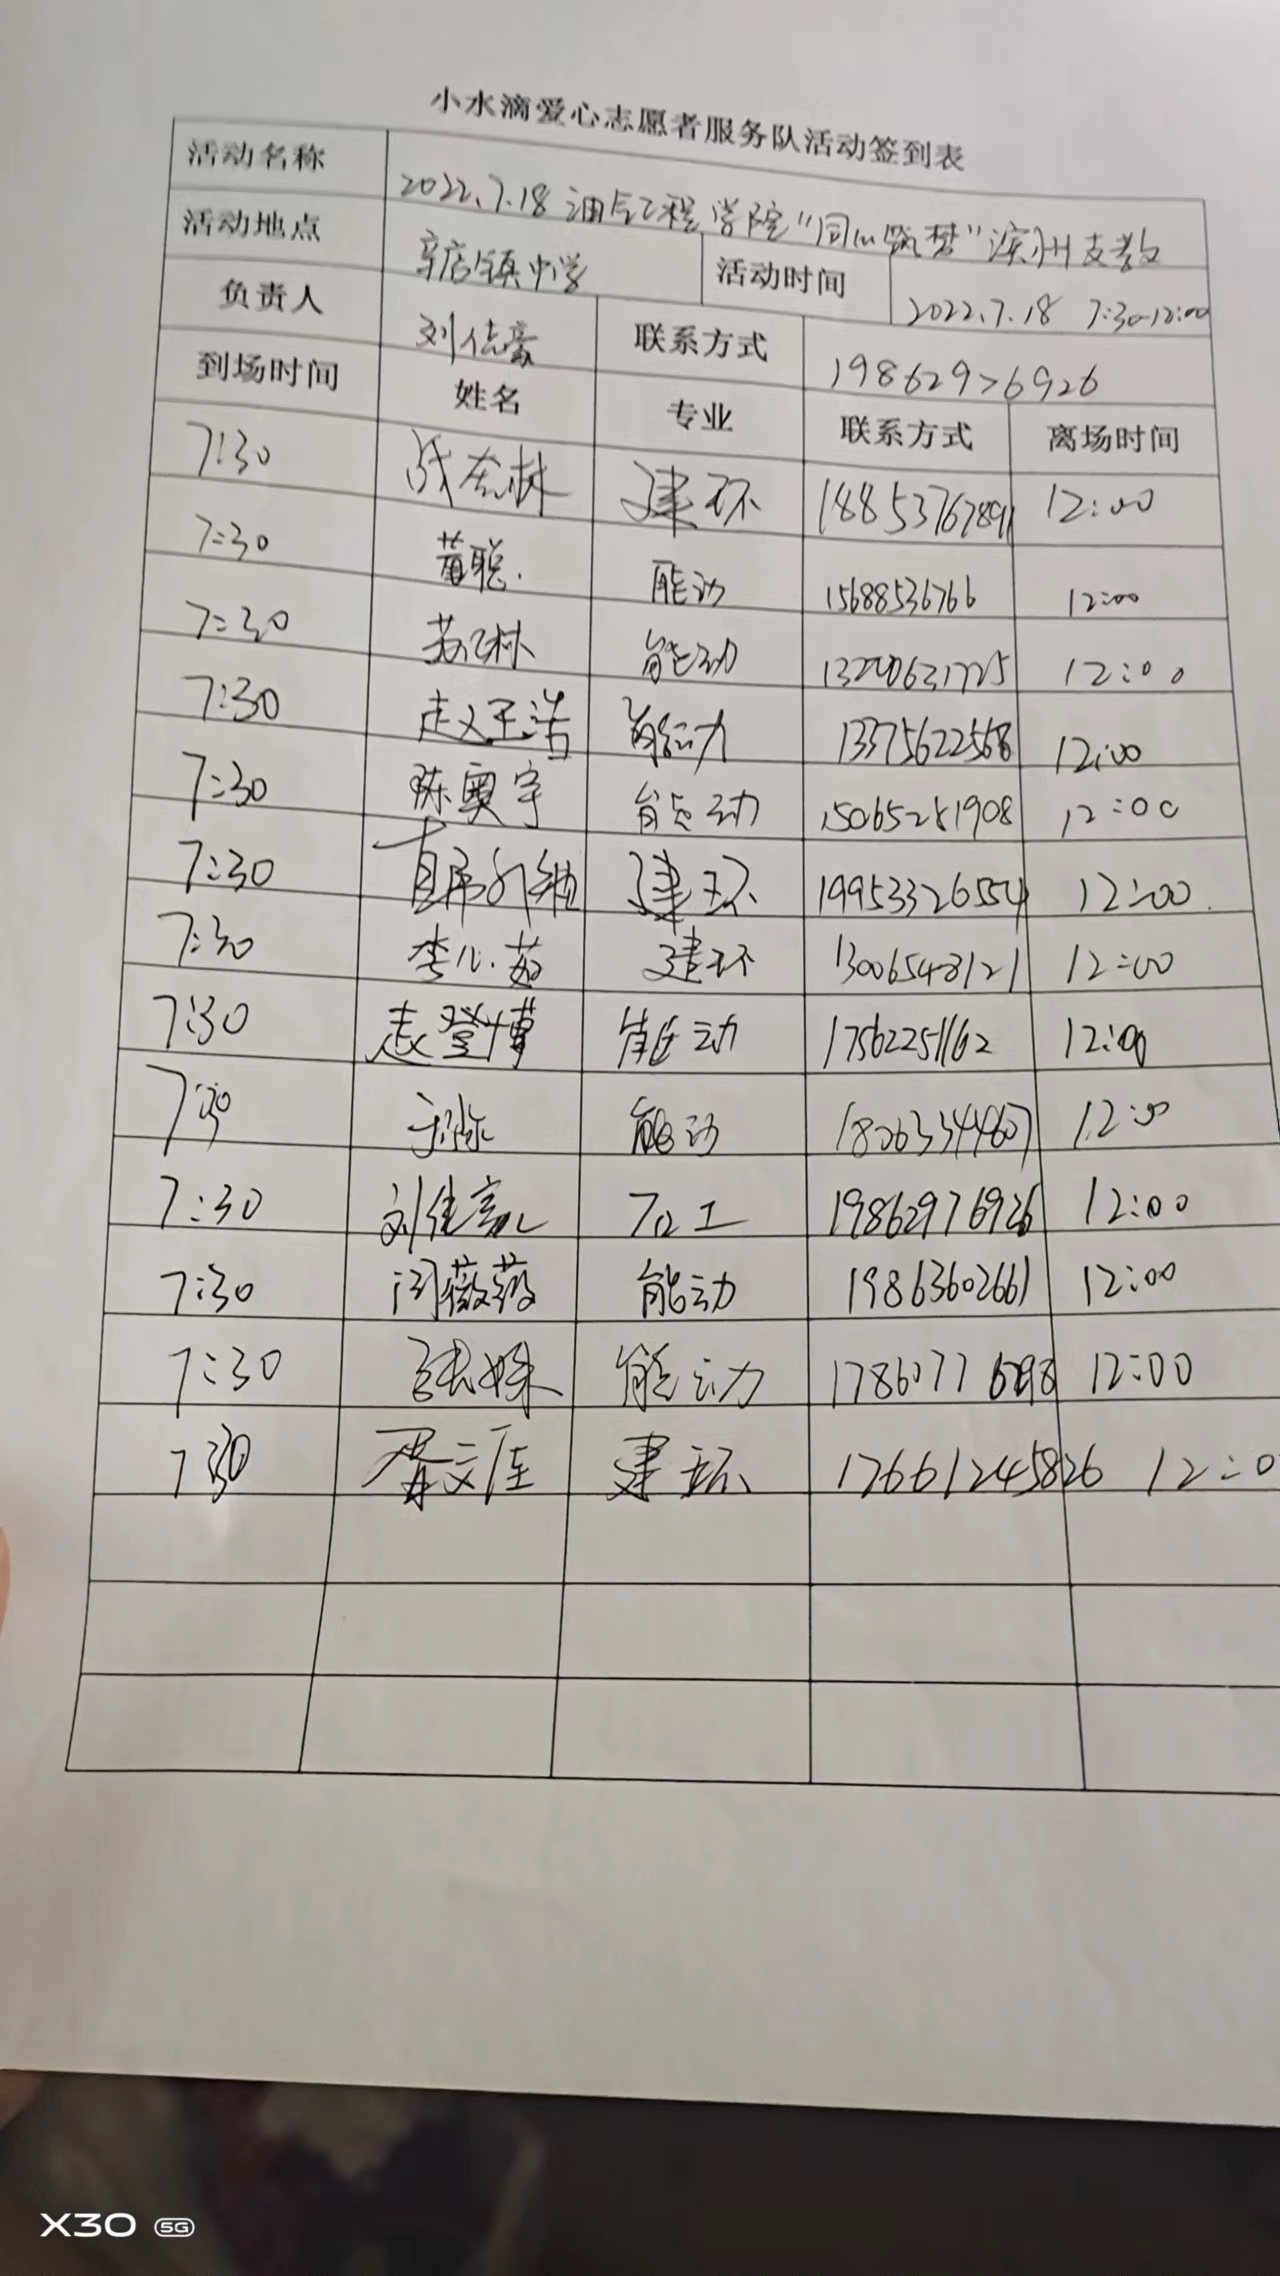 小水滴爱心志愿者服务队活动签到表
活动名称 2022.7.18 油气工程学院“同心筑梦”滨州支教
活动地点 辛店镇中学 活动时间 2022.7.18 7:30-12:00
负责人 刘佳豪 联系方式 19862976926
到场时间 姓名 专业 联系方式 离场时间
7:30 建环 18853767891 12:00
7:30 黄聪. 能动 15688536766 12:00
7:30 能动 12:00
7:30 赵玉浩 能动 13375622568 12:00
7:30 陈奥宇 能动 15065281908 12:00
7:30 建环 19953326554 12:00
7:30 李心茹 建环 13006548121 12:00
7:30 登博 能动 17562251162 12:00
7:30 能动 18063344607 12:00
7:30 刘佳豪 石工 19862976926 12:00
7:30 闫薇薇 能动 19863602661 12:00
7:30 能动 12:00
7:30 建环 17661245826 12:0
X30 5G